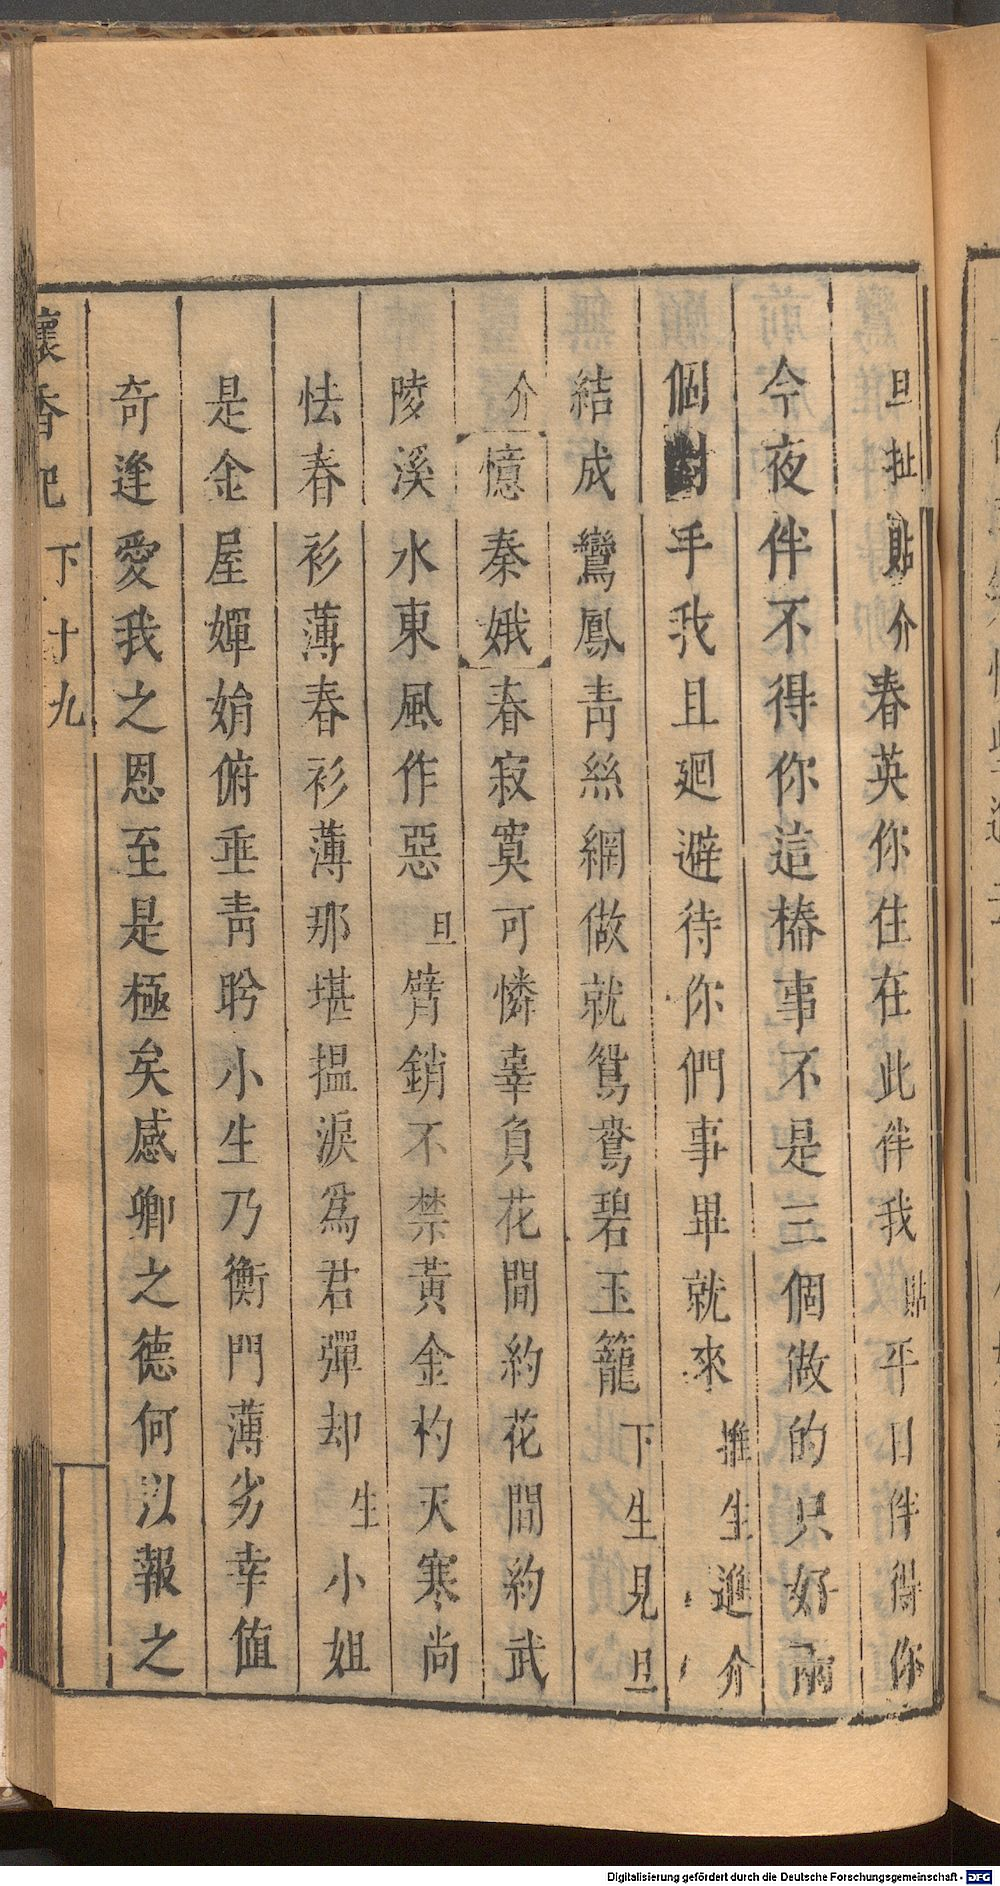 旦扯貼介春英你住在此伴我貼平日伴得你
今夜伴不得你這樁事不是三個做的只好兩
個對手我且廻避待你們事畢就來推生進介
結成鸞鳳靑絲網做就鴛鴦碧玉籠下生見旦
介憶秦娥春寂寞可憐辜負花間約花間約武
陵溪水東風作惡旦臂銷不禁黃金杓天寒尚
怯春衫薄春衫薄那堪搵淚爲君彈却生小姐
是金屋嬋娟俯垂靑盻小生乃衡門薄劣幸値
奇逢愛我之恩至是極矣感卿之德何以報之
懷香記
下十九
Digitalisierung gefördert durch die Deutsche Forschungsgemeinschaft - DFG